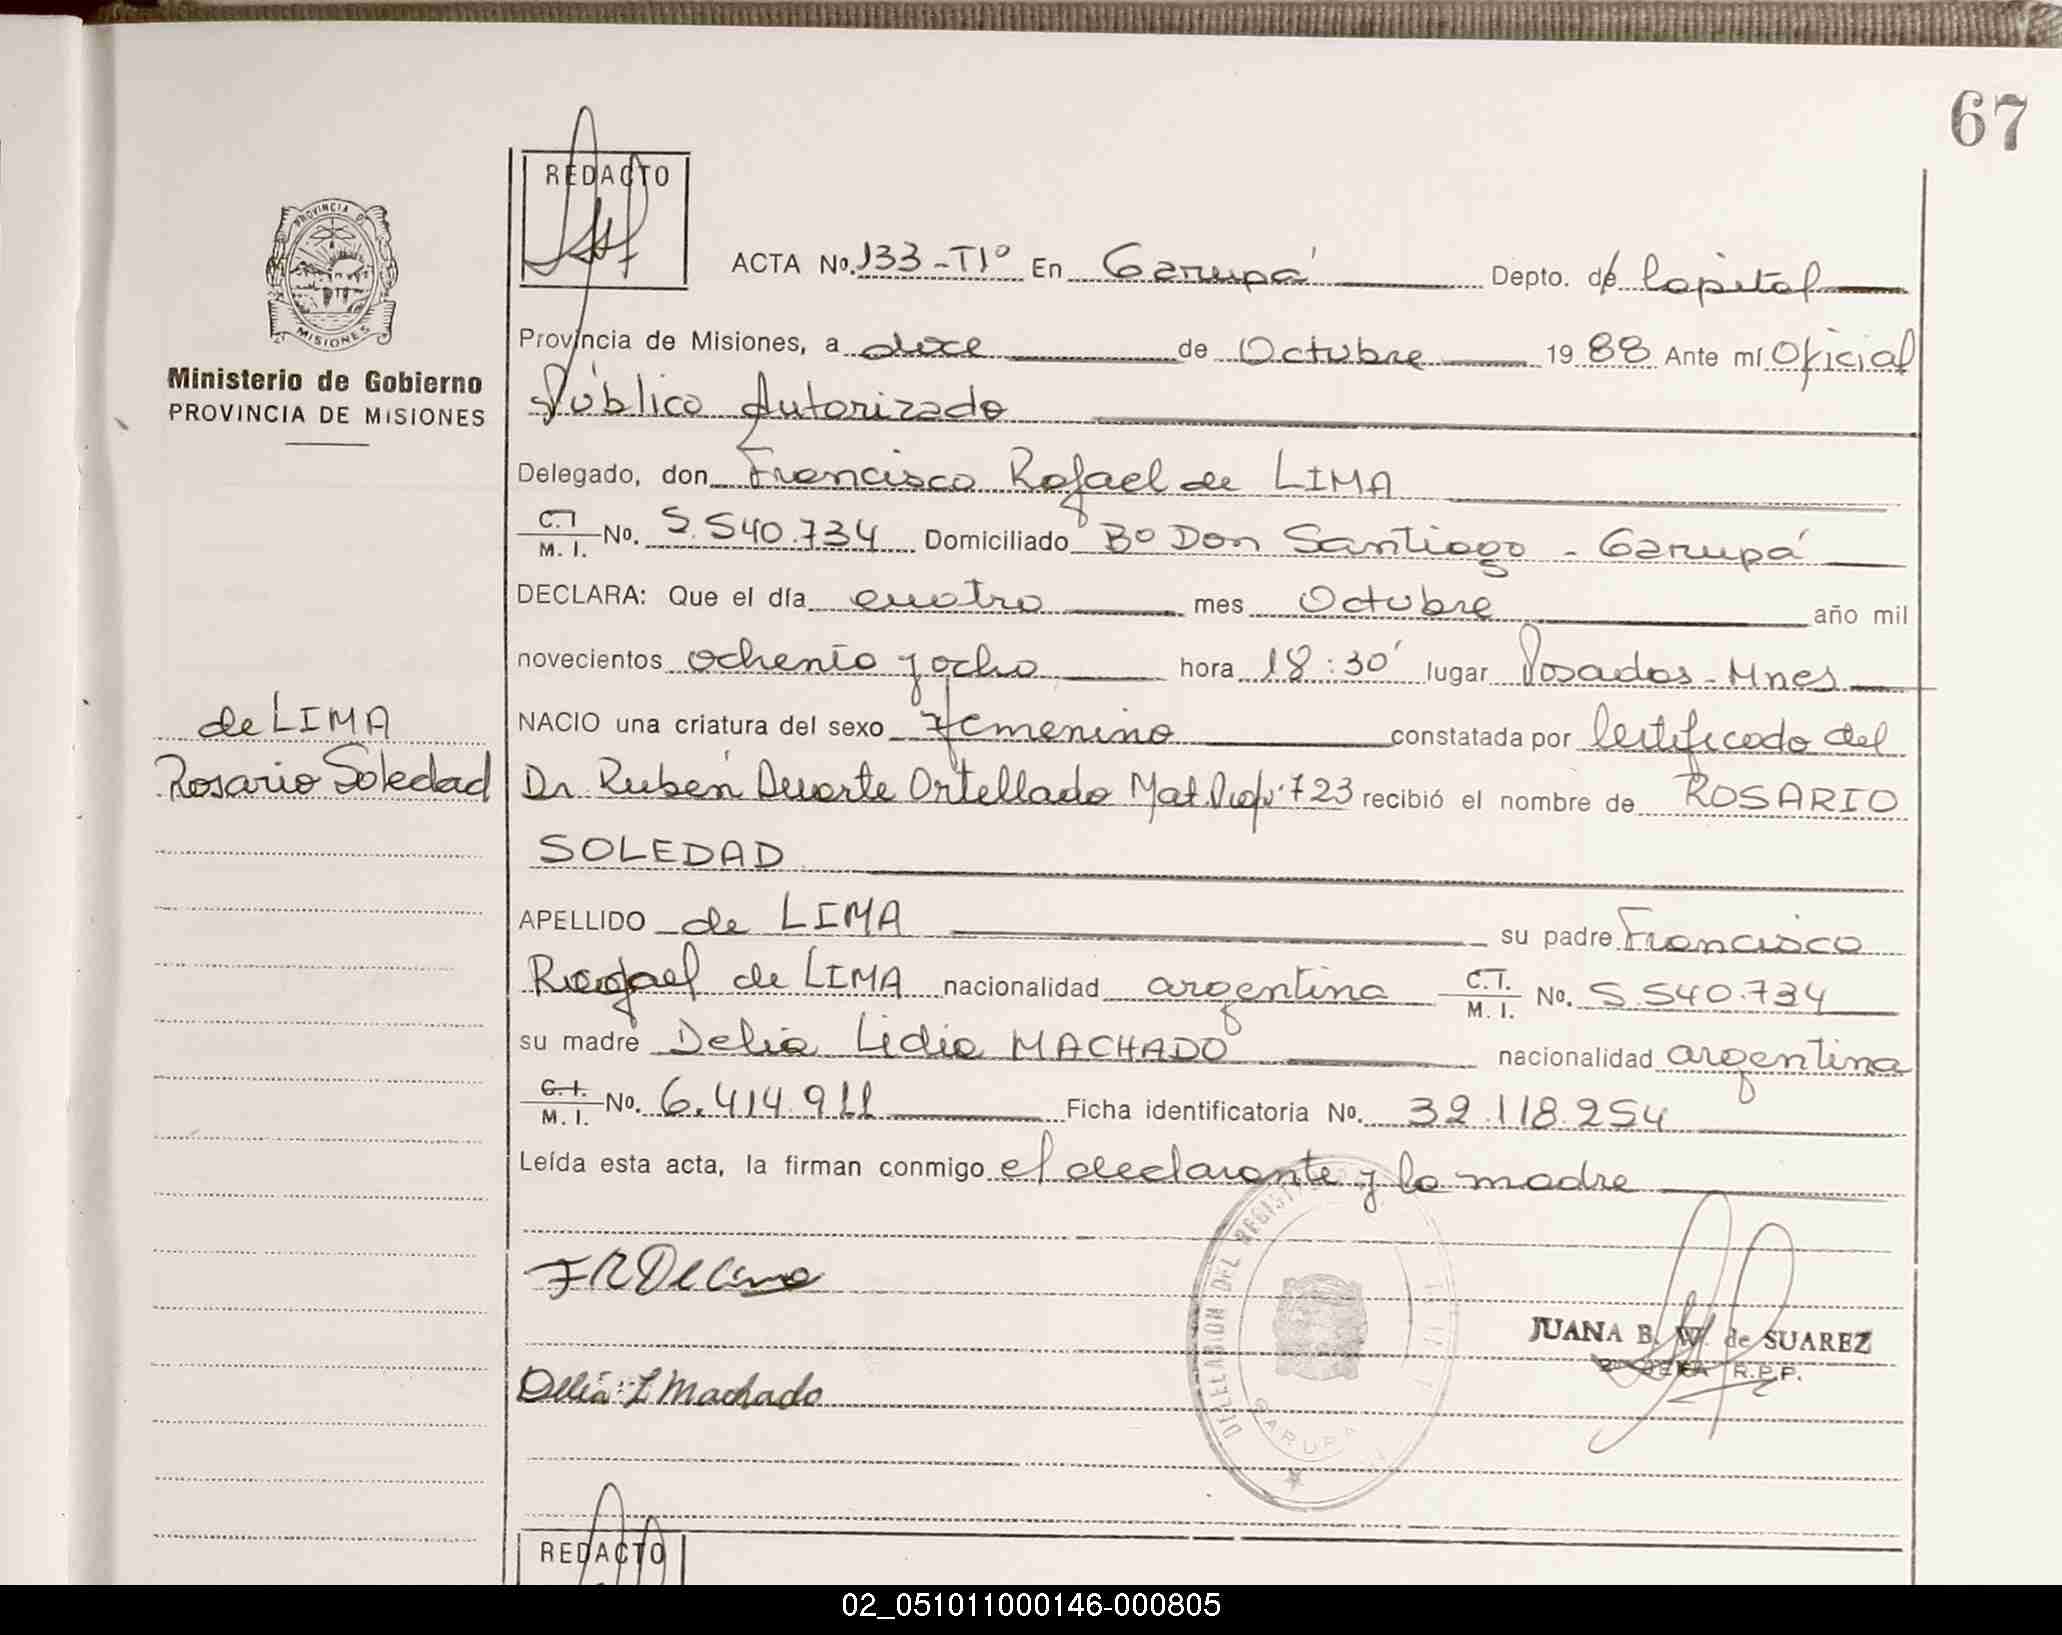 67
REDACTO
ACTA No. 133-T1º En Garupá Depto. de Capital
Provincia de Misiones, a doce de Octubre 1988 Ante mí Oficial
Público Autorizado
Delegado, don Francisco Rafael de LIMA
C.I M. I. No. 5.540.734 Domiciliado Bº Don Santiago - Garupá
DECLARA: Que el día cuatro mes Octubre año mil
novecientos ochenta y ocho hora 18:30' lugar Posadas-Mnes
NACIO una criatura del sexo femenino constatada por Certificado del
Dr. Rubén Duarte Ortellado Mat. Prof. 723 recibió el nombre de ROSARIO
SOLEDAD
APELLIDO de LIMA su padre Francisco
Rafael de LIMA nacionalidad argentina C.I. M. I. No. 5.540.734
su madre Delia Lidia MACHADO nacionalidad argentina
C.I. M. I. No. 6.414.911 Ficha identificatoria No. 32.118.254
Leída esta acta, la firman conmigo el declarante y la madre
F R De Lima
JUANA B. W. de SUAREZ
R.P.P.
Delia L Machado
DEL REGIST
GARUPA
PROVINCIA DE
MISIONES
Ministerio de Gobierno
PROVINCIA DE MISIONES
de LIMA
Rosario Soledad
REDACTO
02_051011000146-000805